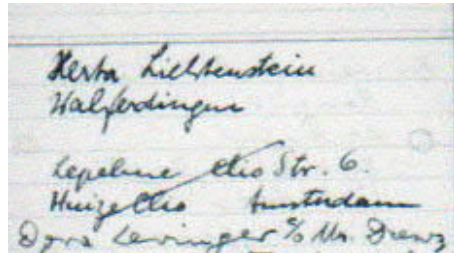 Herta Lichtenstein
Walferdingen
Lepehne Clio Str. 6.
Huize Clio Amsterdam
Dora Levinger c/o Mr.